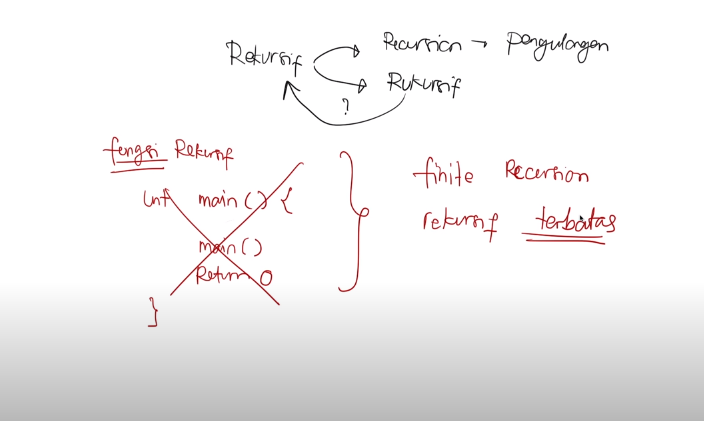 Rekursif
Recursion → Pengulangan
Rukursif
?
fungsi Rekursif
int main () {
main ()
Return 0
}
finite Recursion
rekursif terbatas